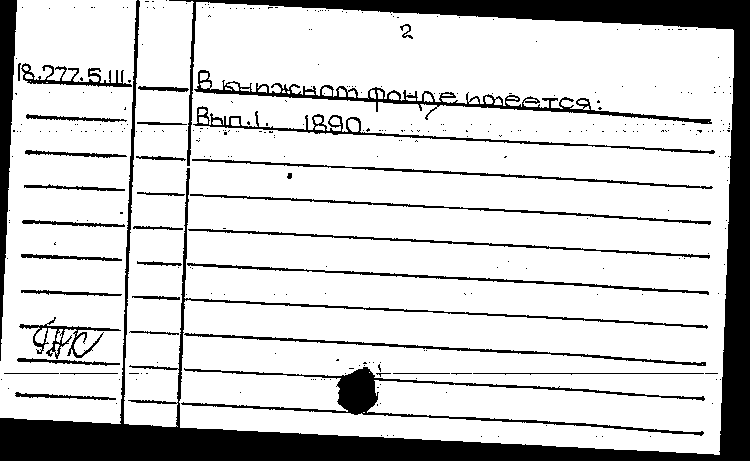 2
18.277.5.III. В книжном фонде имеется:
Вып.1. 1890.